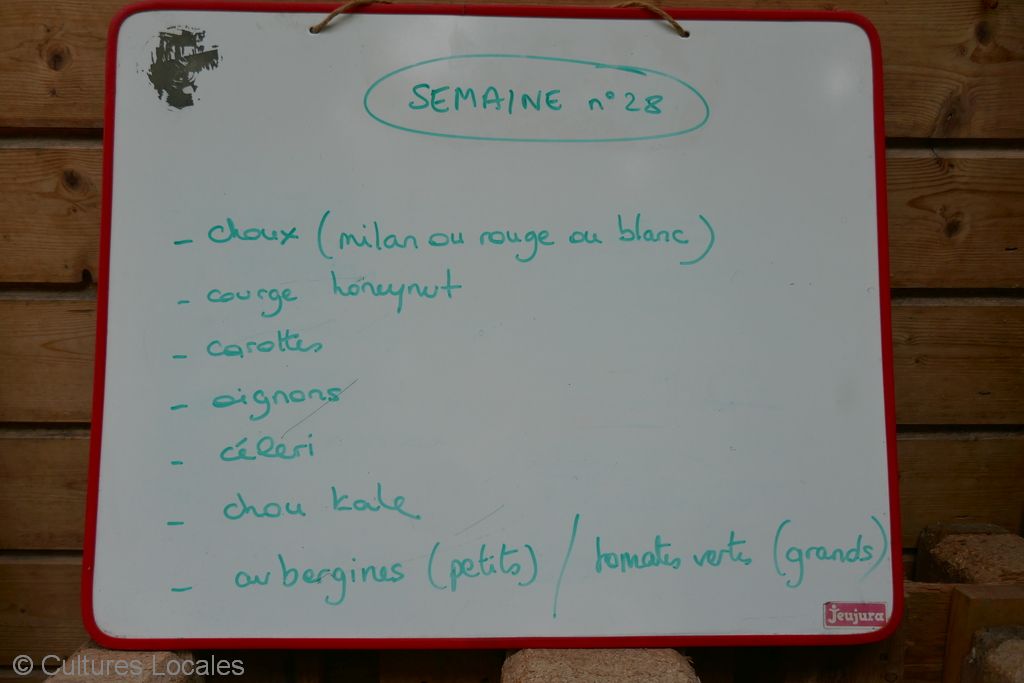 SEMAINE n° 28
- choux (milan ou rouge ou blanc)
- courge honeynut
- carottes
- oignons
- céleri
- chou kale
- aubergines (petits) / tomates vertes (grands)
Jeujura
© Cultures Locales